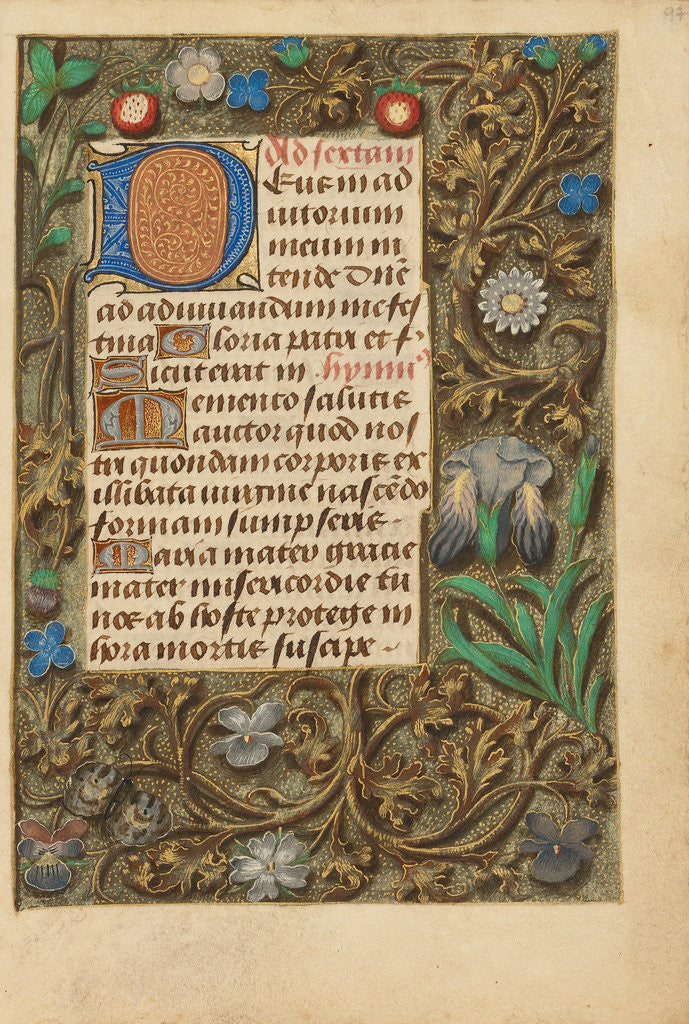 97
Ad sextam
Deus in ad
iutorium
meum in
tende Dn̄e
ad adiuuandum me fes
tina Gloria patri et f.
Sicut erat in. hymnꝰ
Memento salutis
auctor quod nos
tri quondam corporis ex
illibata uirgine nascēdo
formam sumpseris.
Maria mater gracie
mater misericordie tu
nos ab hoste protege in
hora mortis suscipe.